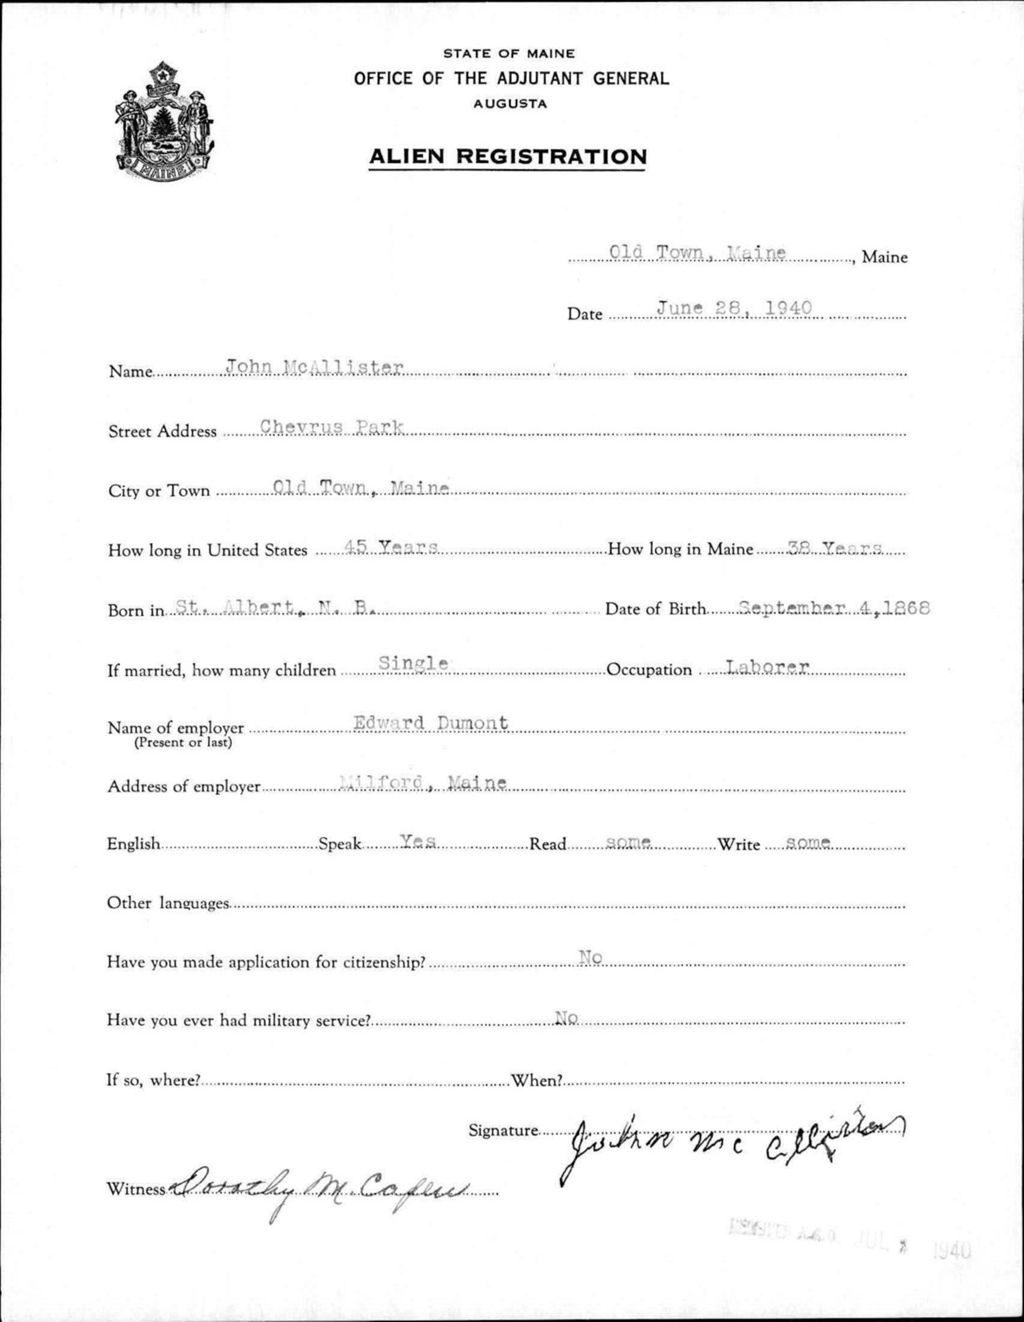 STATE OF MAINE
OFFICE OF THE ADJUTANT GENERAL
AUGUSTA
ALIEN REGISTRATION
MAINE
Old Town, Maine, Maine
Date June 28, 1940
Name John McAllister
Street Address Chevrus Park
City or Town Old Town, Maine
How long in United States 45 Years How long in Maine 38 Years
Born in St. Albert, N. B. Date of Birth September 4, 1868
If married, how many children Single Occupation Laborer
Name of employer Edward Dumont
(Present or last)
Address of employer Milford, Maine
English Speak Yes Read some Write some
Other languages
Have you made application for citizenship? No
Have you ever had military service? No
If so, where? When?
Signature John McAllister
Witness Dorothy M. Capen
JUL 1940